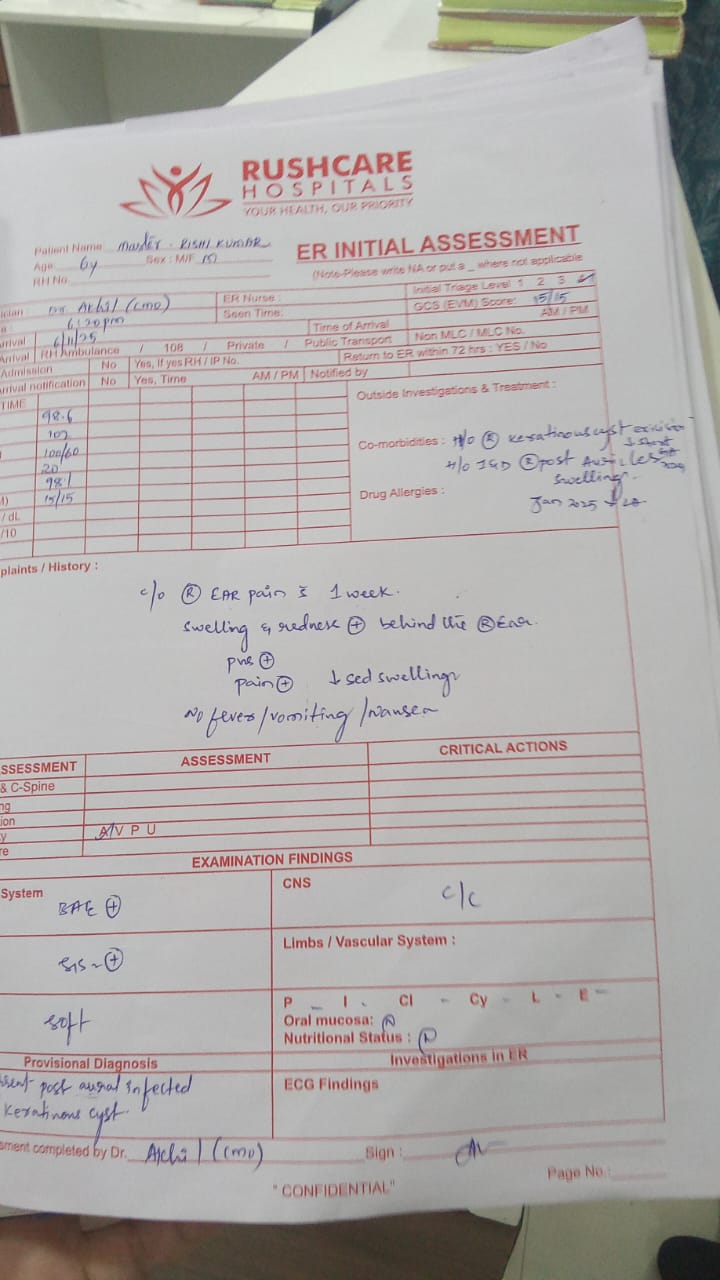 RUSHCARE
HOSPITALS
YOUR HEALTH, OUR PRIORITY
Patient Name Master. RISHI KUMAR
ER INITIAL ASSESSMENT
Age 6y Sex : M/F M
(Note-Please write NA or put a _ where not applicable
RH No.
ician Dr. Akhil (cmo) ER Nurse : Initial Triage Level 1 2 3 4
6:20pm Seen Time: GCS (EVM) Score: 15/15
rrival 6/11/25 Time of Arrival AM / PM
Arrival RH Ambulance / 108 / Private / Public Transport Non MLC / MLC No.
Admission No Yes, If yes RH / IP No. Return to ER within 72 hrs : YES / No
rrival notification No Yes, Time AM / PM Notified by
TIME
Outside Investigations & Treatment :
98.6
100/60
20
98%
15/15
/ dL
/10
Co-morbidities : H/o Ⓡ keratinous cyst
H/o I&D Ⓡ post
swelling.
Drug Allergies :
Jan 2025
plaints / History :
c/o Ⓡ EAR pain 1 week.
swelling & redness ⊕ behind the Ⓡ Ear.
pus ⊕
pain ⊕ ↓sed swelling
No fever /vomiting /Nausea
SSESSMENT ASSESSMENT CRITICAL ACTIONS
& C-Spine
ng
ion
y A V P U
re
EXAMINATION FINDINGS
System BAE ⊕
CNS c/c
⊕
Limbs / Vascular System :
soft
P _ I - Cl - Cy - L - E -
Oral mucosa: Ⓝ
Nutritional Status : Ⓝ
Provisional Diagnosis
Investigations in ER
post aural infected
Keratinous cyst.
ECG Findings
sment completed by Dr. Akhil (cmo) Sign :
Page No.:
" CONFIDENTIAL"